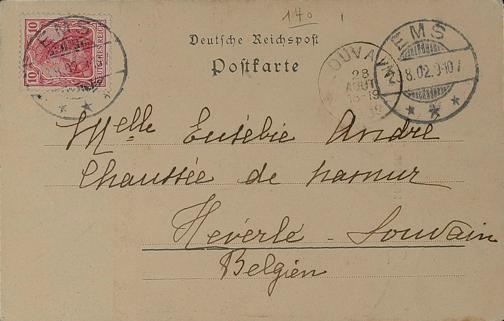 140
Deutsche Reichspost
Postkarte
EMS
10 10
EMS
8.02.9-10V
LOUVAIN
28
AOUT
18-19
Melle Eusébie André
Chaussée de Namur
Héverlé - Louvain
Belgien